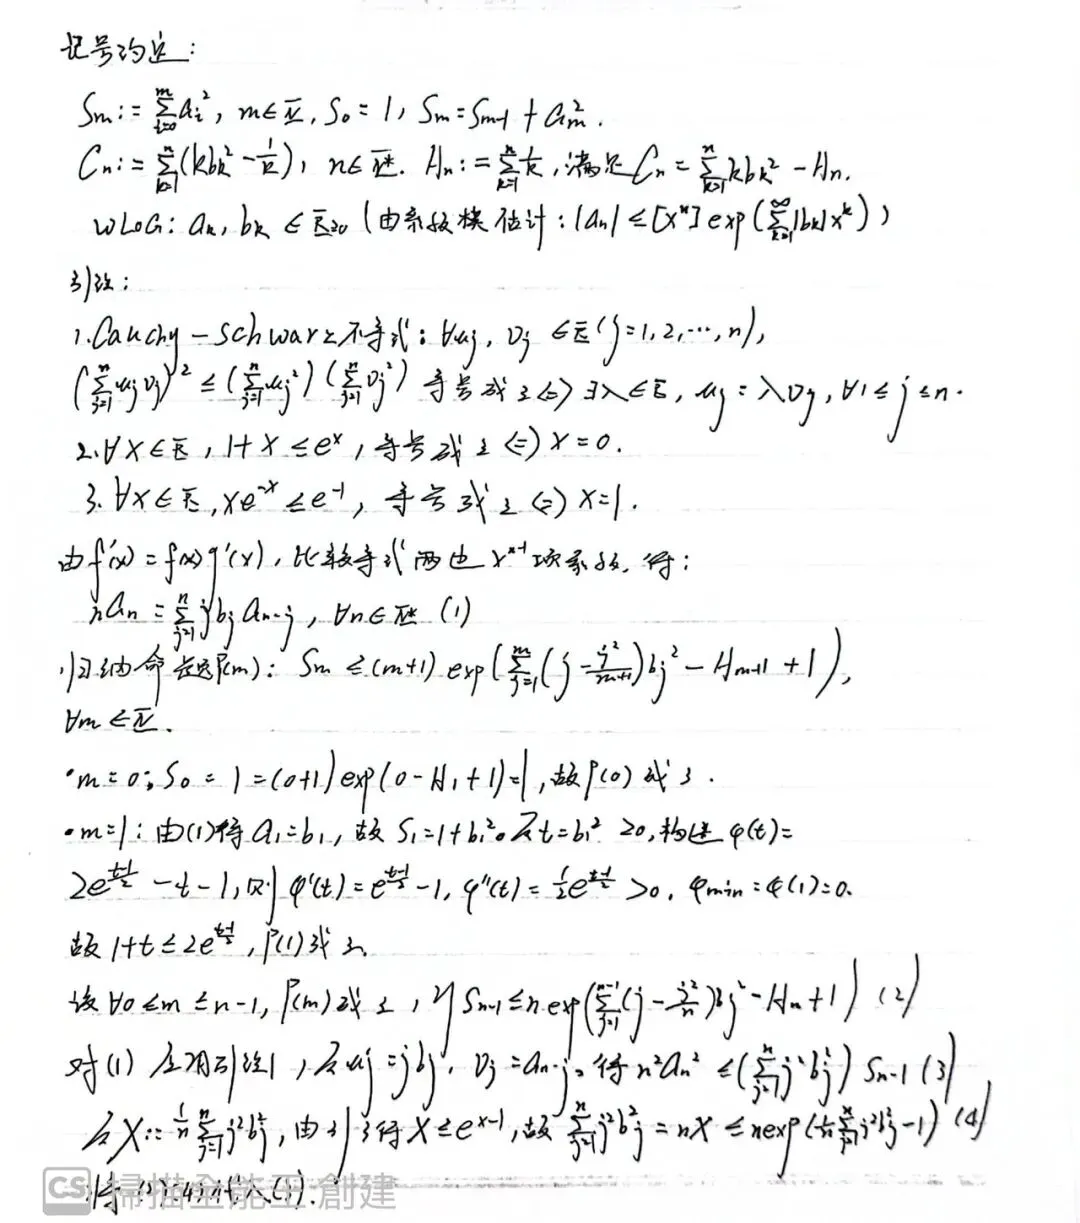 记号约定:
Sm:=∑_{i=0}^{m} a_i², m∈ℕ, S₀=1, Sm=S_{m-1}+a_m².
Cn:=∑_{k=1}^{n}(kb_k²-1/k), n∈ℕ*. Hn:=∑_{k=1}^{n}1/k, 满足Cn=∑_{k=1}^{n}kb_k²-Hn.
WLOG: a_k, b_k∈ℝ≥0 (由系数模估计: |an|≤[xⁿ]exp(∑_{k=1}^{∞}|b_k|x^k))
引理:
1.Cauchy-Schwarz不等式: ∀u_j, v_j∈ℝ(j=1,2,…,n),
(∑_{j=1}^{n}u_jv_j)²≤(∑_{j=1}^{n}u_j²)(∑_{j=1}^{n}v_j²) 等号成立⇔∃λ∈ℝ, u_j=λv_j, ∀1≤j≤n.
2.∀x∈ℝ, 1+x≤e^x, 等号成立⇔x=0.
3.∀x∈ℝ, xe^{-x}≤e^{-1}, 等号成立⇔x=1.
由f'(x)=f(x)g'(x), 比较等式两边x^{n-1}项系数, 得:
na_n=∑_{j=1}^{n}jb_ja_{n-j}, ∀n∈ℕ* (1)
归纳命题P(m): Sm≤(m+1)exp(∑_{j=1}^{m}(j-j²/(m+1))b_j²-H_{m+1}+1),
∀m∈ℕ.
•m=0: S₀=1=(0+1)exp(0-H₁+1)=1, 故P(0)成立.
•m=1: 由(1)得a₁=b₁, 故S₁=1+b₁². 令t=b₁²≥0, 构造φ(t)=
2e^{(t-1)/2}-t-1, 则φ'(t)=e^{(t-1)/2}-1, φ''(t)=½e^{(t-1)/2}>0, φmin=φ(1)=0.
故1+t≤2e^{(t-1)/2}, P(1)成立.
设∀0≤m≤n-1, P(m)成立, 则S_{n-1}≤n exp(∑_{j=1}^{n-1}(j-j²/n)b_j²-Hn+1) (2)
对(1)应用引理1, 令u_j=jb_j, v_j=a_{n-j}, 得n²a_n²≤(∑_{j=1}^{n}j²b_j²)S_{n-1} (3)
令X:=1/n∑_{j=1}^{n}j²b_j², 由引3得X≤e^{X-1}, 故∑_{j=1}^{n}j²b_j²=nX≤n exp(1/n∑_{j=1}^{n}j²b_j²-1) (4)
将
CS 掃描全能王 創建